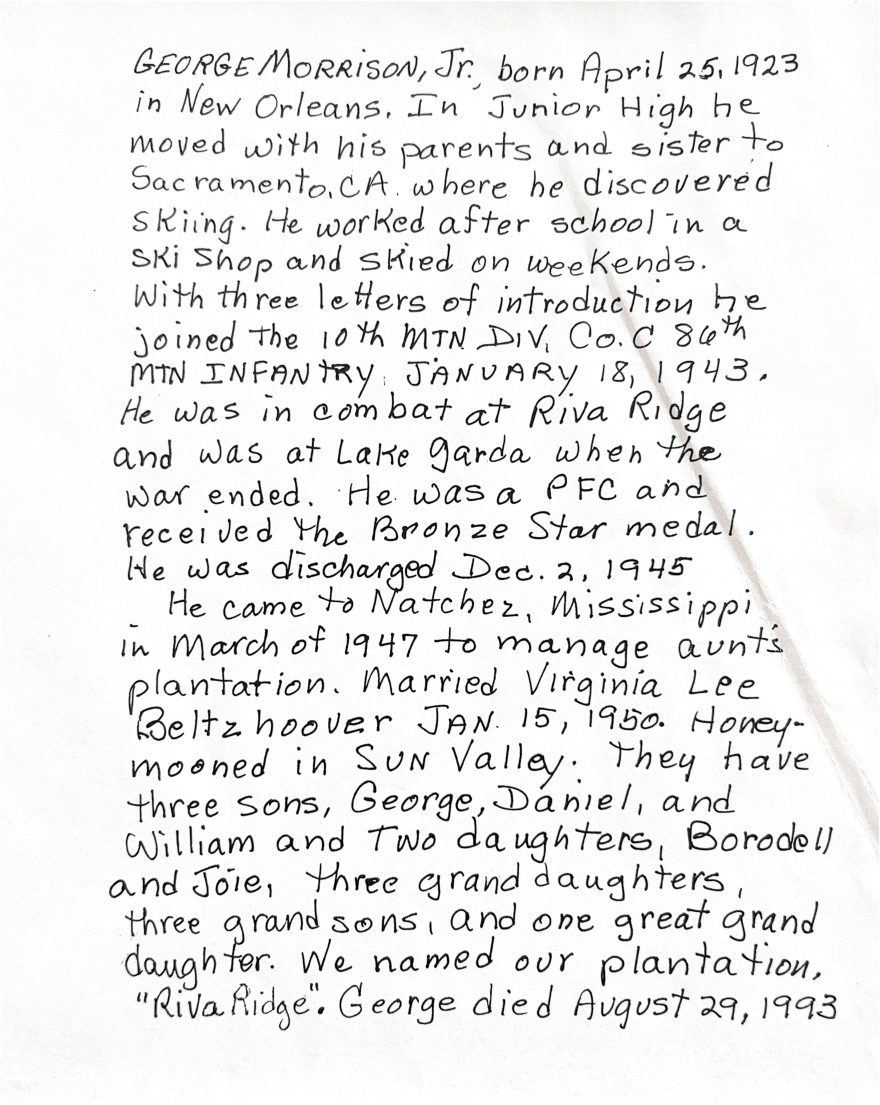 GEORGE MORRISON, Jr., born April 25, 1923
in New Orleans. In Junior High he
moved with his parents and sister to
Sacramento, CA. where he discovered
skiing. He worked after school in a
ski shop and skied on weekends.
With three letters of introduction he
joined the 10th MTN DIV, Co. C 86th
MTN INFANTRY, JANUARY 18, 1943.
He was in combat at Riva Ridge
and was at Lake Garda when the
war ended. He was a PFC and
received the Bronze Star medal.
He was discharged Dec. 2, 1945
He came to Natchez, Mississippi
in March of 1947 to manage aunt's
plantation. Married Virginia Lee
Beltzhoover JAN. 15, 1950. Honey-
mooned in SUN Valley. They have
three sons, George, Daniel, and
William and Two daughters, Borodell
and Joie, three granddaughters,
three grandsons, and one great grand
daughter. We named our plantation,
"Riva Ridge". George died August 29, 1993